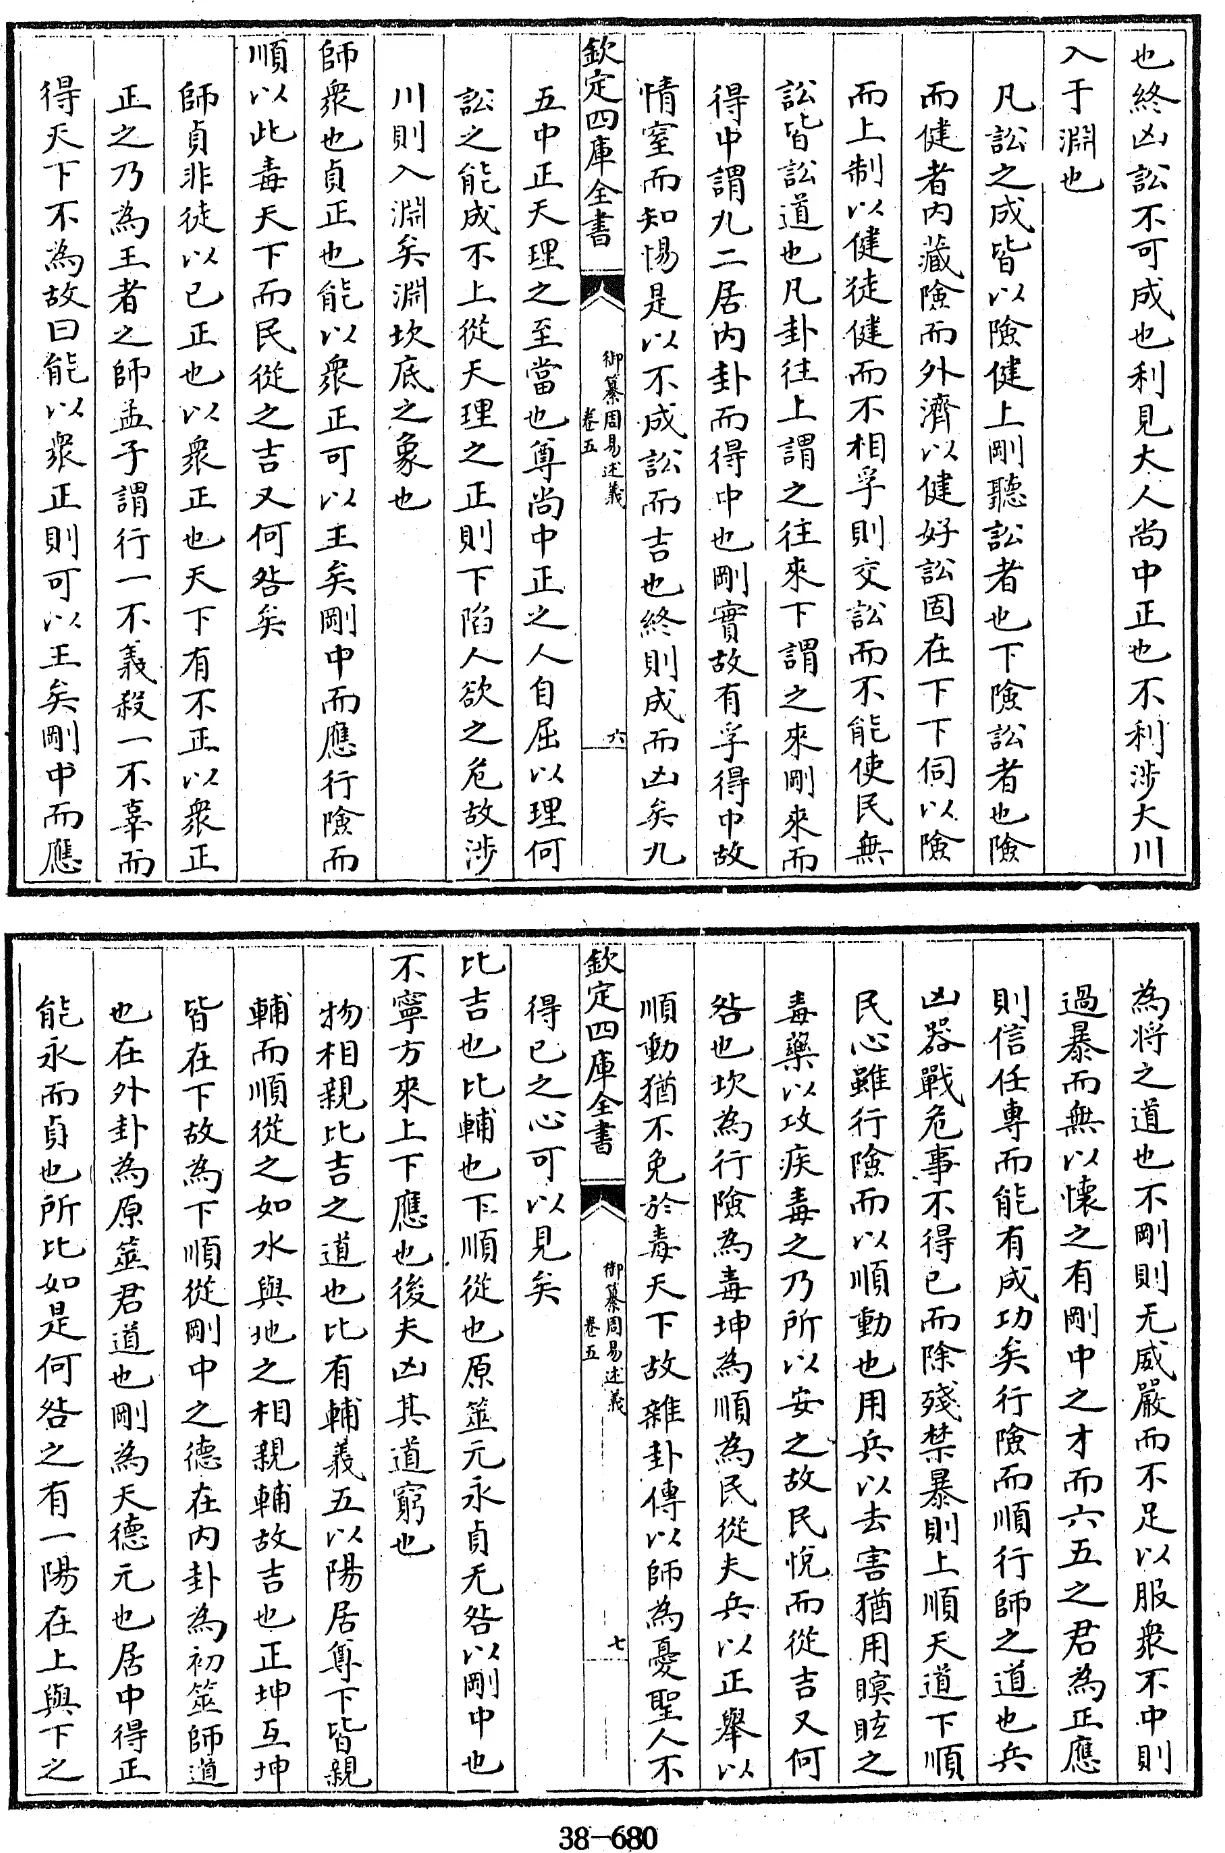 也終凶訟不可成也利見大人尚中正也不利涉大川
入于淵也
凡訟之成皆以險健上剛聽訟者也下險訟者也險
而健者内藏險而外濟以健好訟固在下下伺以險
而上制以健徒健而不相孚則交訟而不能使民無
訟皆訟道也凡卦往上謂之往來下謂之來剛來而
得中謂九二居内卦而得中也剛實故有孚得中故
情窒而知惕是以不成訟而吉也終則成而凶矣九
欽定四庫全書
御纂周易述義
卷五
六
五中正天理之至當也尊尚中正之人自屈以理何
訟之能成不上從天理之正則下陷人欲之危故涉
川則入淵矣淵坎底之象也
師衆也貞正也能以衆正可以王矣剛中而應行險而
順以此毒天下而民從之吉又何咎矣
師貞非徒以已正也以衆正也天下有不正以衆正
正之乃為王者之師孟子謂行一不義殺一不辜而
得天下不為故曰能以衆正則可以王矣剛中而應
為將之道也不剛則无威嚴而不足以服衆不中則
過暴而無以懷之有剛中之才而六五之君為正應
則信任專而能有成功矣行險而順行師之道也兵
凶器戰危事不得已而除殘禁暴則上順天道下順
民心雖行險而以順動也用兵以去害猶用瞑眩之
毒藥以攻疾毒之乃所以安之故民悅而從吉又何
咎也坎為行險為毒坤為順為民從夫兵以正舉以
順動猶不免於毒天下故雜卦傳以師為憂聖人不
欽定四庫全書
御纂周易述義
卷五
七
得已之心可以見矣
比吉也比輔也下順從也原筮元永貞无咎以剛中也
不寧方來上下應也後夫凶其道窮也
物相親比吉之道也比有輔義五以陽居尊下皆親
輔而順從之如水與地之相親輔故吉也正坤互坤
皆在下故為下順從剛中之德在内卦為初筮師道
也在外卦為原筮君道也剛為天德元也居中得正
能永而貞也所比如是何咎之有一陽在上與下之
38-680